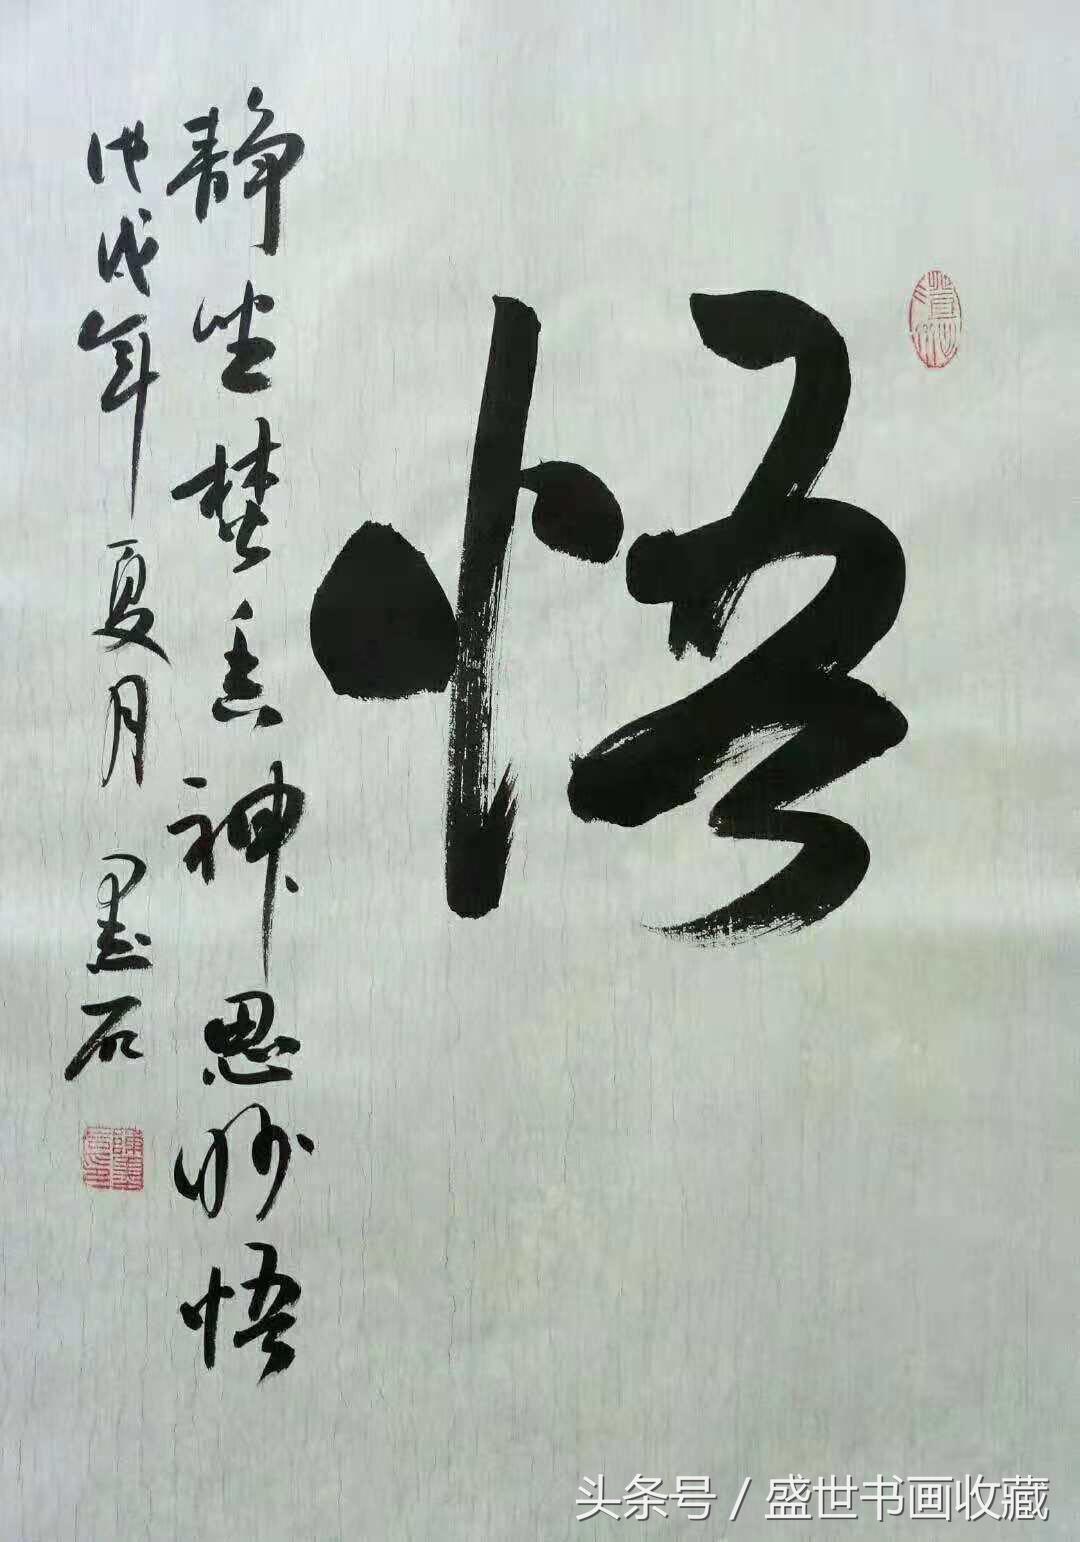 悟
静坐焚香神思妙悟
戊戌年夏月 墨石
头条号 / 盛世书画收藏